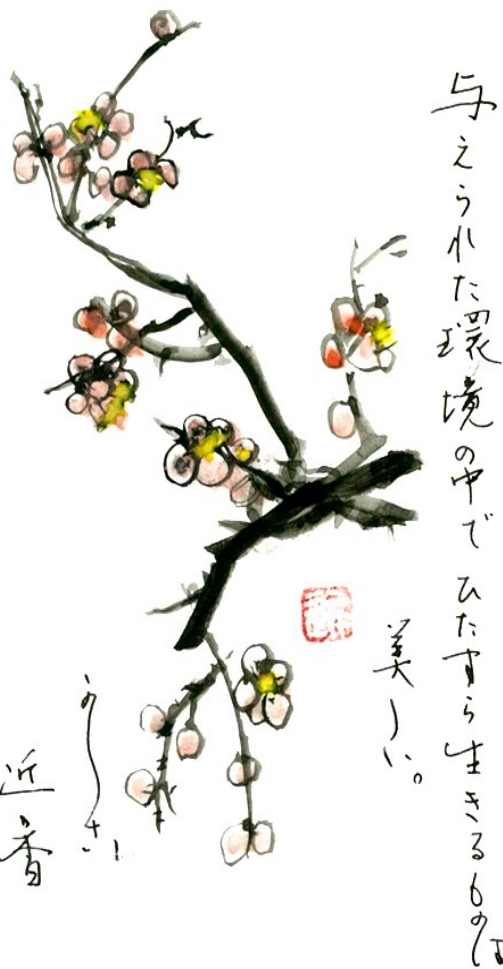 与えられた環境の中で ひたすら生きるものは
美しい。
近香